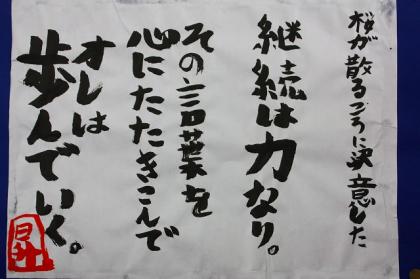 桜が散るころに決意した
継続は力なり。
その言葉を
心にたたきこんで
オレは
歩んでいく。